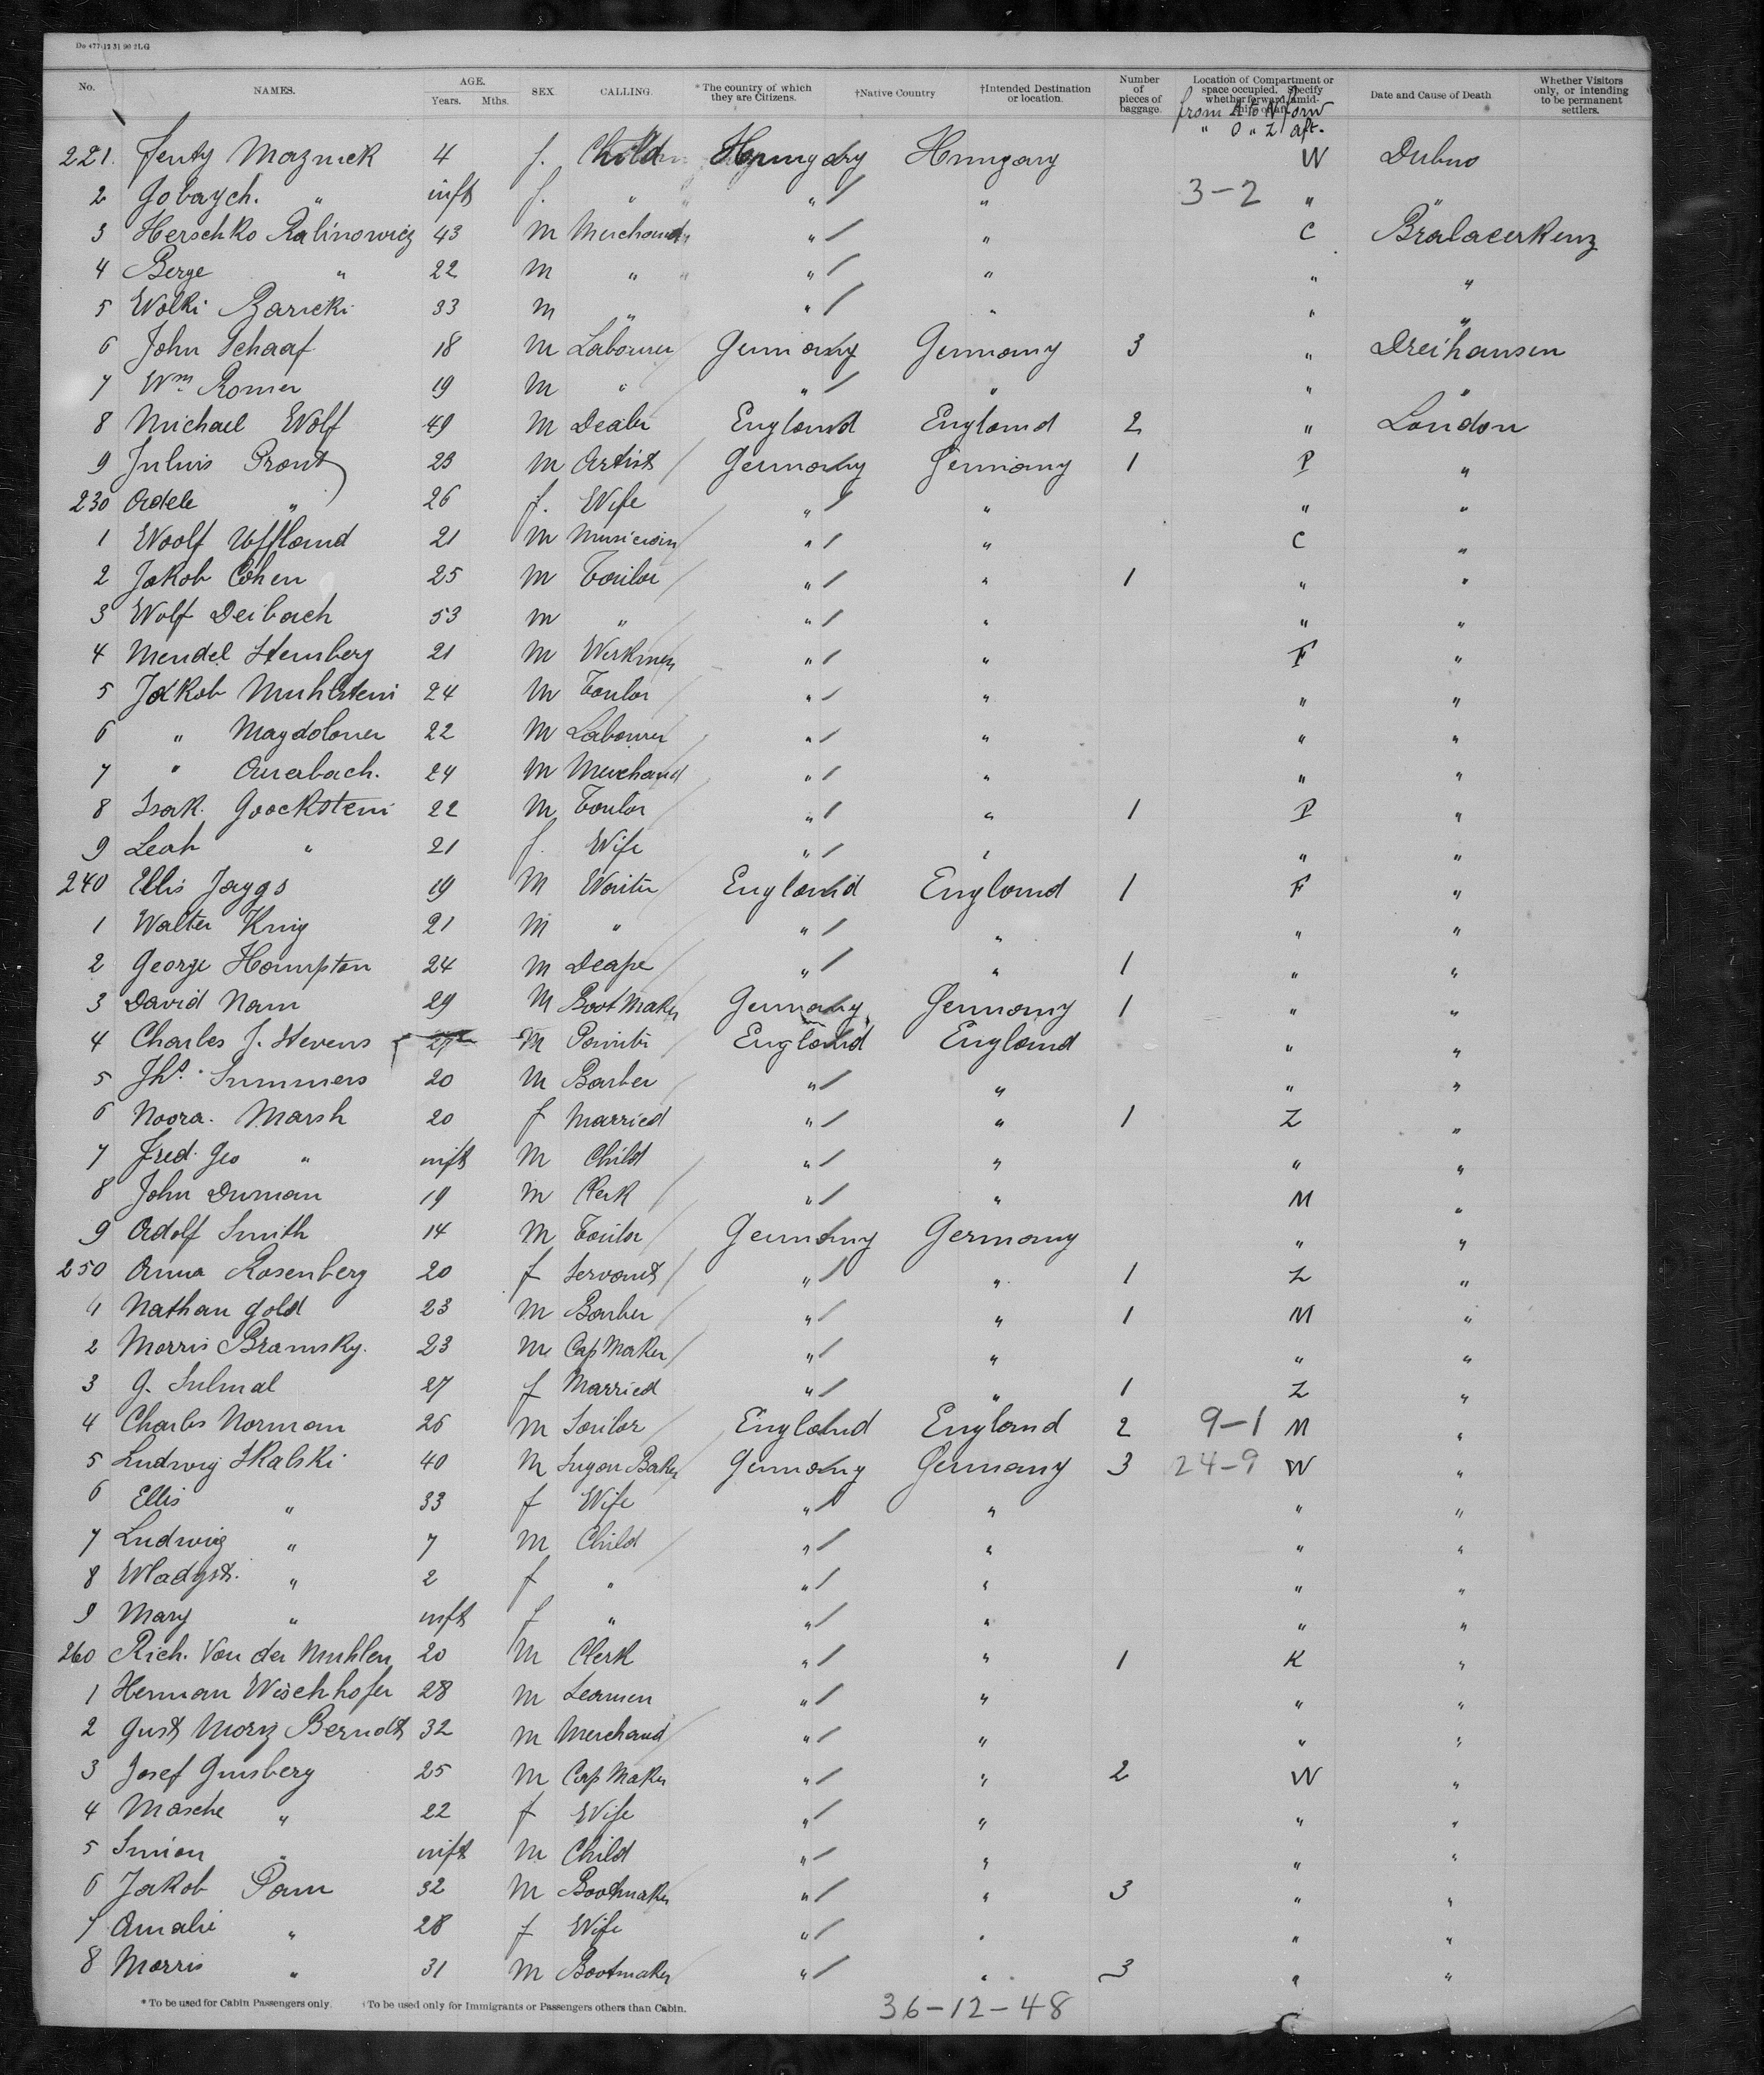 Do 477-12 31 90 2LG
No. NAMES. AGE. Years. Mths. SEX. CALLING. * The country of which they are Citizens. †Native Country †Intended Destination or location. Number of pieces of baggage. Location of Compartment or space occupied. Specify whether forward, Date and Cause of Death Whether Visitors only, or intending to be permanent settlers.
from A to N forw
" O " Z aft.
221. Jenty 4 f. Child Hungary Hungary W Dubno
2 " inft f. " " " 3-2 "
3 Herschko Kalinowicz 43 M Merchand " " C
4 Berge " 22 M " " " " "
5 Wolki 33 M " " " " "
6 John Schaaf 18 M Labourer Germany Germany 3 " Dreihausen
7 Wm Romer 19 M " " " " "
8 Michael Wolf 49 M Dealer England England 2 " London
9 Julius 23 M Artist Germany Germany 1 P "
230 Adele " 26 f. Wife " " " "
1 Woolf Uffland 21 M Musician " " C "
2 Jakob Cohen 25 M Tailor " " 1 " "
3 Wolf Deibach 53 M " " " " "
4 Mendel Sternberg 21 M Workmen " " F "
5 Jakob Muhlstein 24 M Tailor " " " "
6 " Magdoloner 22 M Labourer " " " "
7 " Auerbach. 24 M Merchand " " " "
8 Isak. Goockstein 22 M Tailor " " 1 P "
9 Leah " 21 f. Wife " " " "
240 Ellis Jaggs 19 M Waiter England England 1 F "
1 Walter King 21 M " " " " "
2 George Hampton 24 M " " 1 " "
3 David Nam 29 M Boot Maker Germany Germany 1 " "
4 Charles J. Stevens 27 M Painter England England " "
5 Jhs. Summers 20 M Barber " " " "
6 Noora. Marsh 20 f Married " " 1 Z "
7 Fred. Geo " inft M Child " " " "
8 John Duman 19 M Clerk " " M "
9 Adolf Smith 14 M Tailor Germany Germany " "
250 Anna Rosenberg 20 f Servant " " 1 Z "
1 Nathan Gold 23 M Barber " " 1 M "
2 Morris Bramsky. 23 M Cap Maker " " " "
3 G. Sulmal 27 f Married " " 1 Z "
4 Charles Norman 26 M Sailor England England 2 9-1 M "
5 Ludwig Skalski 40 M Sugar Baker Germany Germany 3 24-9 W "
6 Ellis " 33 f Wife " " " "
7 Ludwig " 7 M Child " " " "
8 Wladyst. " 2 f " " " " "
9 Mary " inft f " " " " "
260 Rich. Von der Muhlen 20 M Clerk " " 1 K "
1 Herman Wischhofer 28 M Seamen " " " "
2 Gust Moriz Berndt 32 M Merchand " " " "
3 Josef Ginsberg 25 M Cap Maker " " 2 W "
4 Masche " 22 f Wife " " " "
5 Simon " inft M Child " " " "
6 Jakob Pam 32 M Bootmaker " " 3 " "
7 Amalie " 28 f Wife " " " "
8 Morris " 31 M Bootmaker " " 3 " "
* To be used for Cabin Passengers only. †To be used only for Immigrants or Passengers others than Cabin.
36-12-48